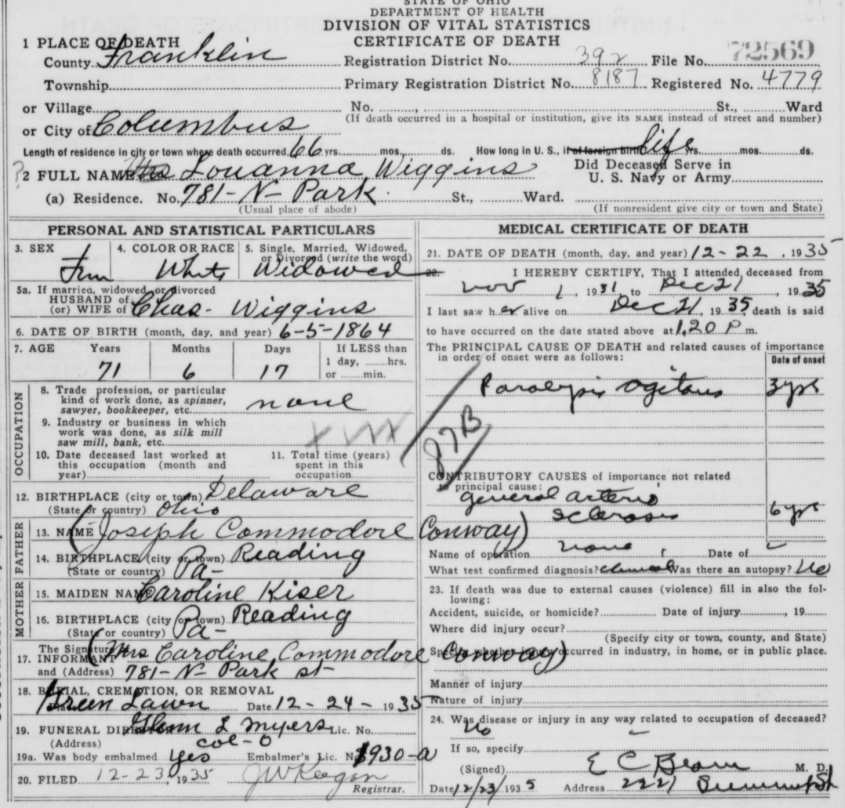 STATE OF OHIO
DEPARTMENT OF HEALTH
DIVISION OF VITAL STATISTICS
CERTIFICATE OF DEATH
1 PLACE OF DEATH
County Franklin Registration District No. 392 File No. 72569
Township Primary Registration District No. 8187 Registered No. 4779
or Village No. St., Ward
(If death occurred in a hospital or institution, give its NAME instead of street and number)
or City of Columbus
Length of residence in city or town where death occurred 66 yrs. mos. ds. How long in U. S., if of foreign birth life yrs. mos. ds.
? 2 FULL NAME Mrs Louanna Wiggins Did Deceased Serve in U. S. Navy or Army
(a) Residence. No. 781-N-Park St., Ward.
(Usual place of abode) (If nonresident give city or town and State)
PERSONAL AND STATISTICAL PARTICULARS
3. SEX Fem 4. COLOR OR RACE White 5. Single, Married, Widowed, or Divorced (write the word) Widowed
5a. If married, widowed, or divorced
HUSBAND of
(or) WIFE of Chas- Wiggins
6. DATE OF BIRTH (month, day, and year) 6-5-1864
7. AGE Years Months Days If LESS than
1 day, hrs.
or min.
71 6 17
OCCUPATION
8. Trade profession, or particular
kind of work done, as spinner,
sawyer, bookkeeper, etc. none
9. Industry or business in which
work was done, as silk mill
saw mill, bank, etc.
10. Date deceased last worked at
this occupation (month and
year)
11. Total time (years)
spent in this
occupation
12. BIRTHPLACE (city or town) Delaware
(State or country) Ohio
FATHER
13. NAME (Joseph Commodore Conway)
14. BIRTHPLACE (city or town) Reading
(State or country) Pa-
MOTHER
15. MAIDEN NAME Caroline Kiser
16. BIRTHPLACE (city or town) Reading
(State or country) Pa-
17. The Signature
INFORMANT (Mrs Caroline Commodore Conway)
and (Address) 781-N-Park st-
18. BURIAL, CREMATION, OR REMOVAL
Green Lawn Date 12-24-1935
19. FUNERAL DIRECTOR Glenn L Myers Lic. No.
(Address) Col-O
19a. Was body embalmed yes Embalmer's Lic. No. 3930-a
20. FILED 12-23, 1935 J W Keegan
Registrar.
MEDICAL CERTIFICATE OF DEATH
21. DATE OF DEATH (month, day, and year) 12-22, 1935
22. I HEREBY CERTIFY, That I attended deceased from
Nov 1, 1931 to Dec 21, 1935
I last saw her alive on Dec 21, 1935 death is said
to have occurred on the date stated above at 1,20 P m.
The PRINCIPAL CAUSE OF DEATH and related causes of importance
in order of onset were as follows:
Date of onset
Paralysis agitans 3 yrs
87B
CONTRIBUTORY CAUSES of importance not related
to principal cause:
general arterio
sclerosis 6 yrs
Name of operation none Date of
What test confirmed diagnosis? clinical Was there an autopsy? No
23. If death was due to external causes (violence) fill in also the following:
Accident, suicide, or homicide? Date of injury, 19
Where did injury occur?
(Specify city or town, county, and State)
Specify whether injury occurred in industry, in home, or in public place.
Manner of injury
Nature of injury
24. Was disease or injury in any way related to occupation of deceased?
No
If so, specify
(Signed) E C Beam M. D.
Date 12/23/1935 Address 2221 Summit St